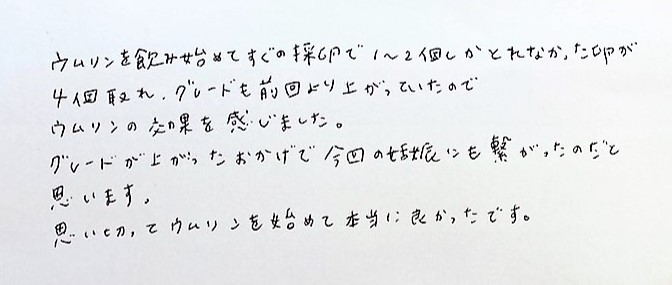 ウムリンを飲み始めてすぐの採卵で1〜2個しかとれなかった卵が
4個取れ、グレードも前回より上がっていたので
ウムリンの効果を感じました。
グレードが上がったおかげで今回の妊娠にも繋がったのだと
思います。
思い切ってウムリンを始めて本当に良かったです。